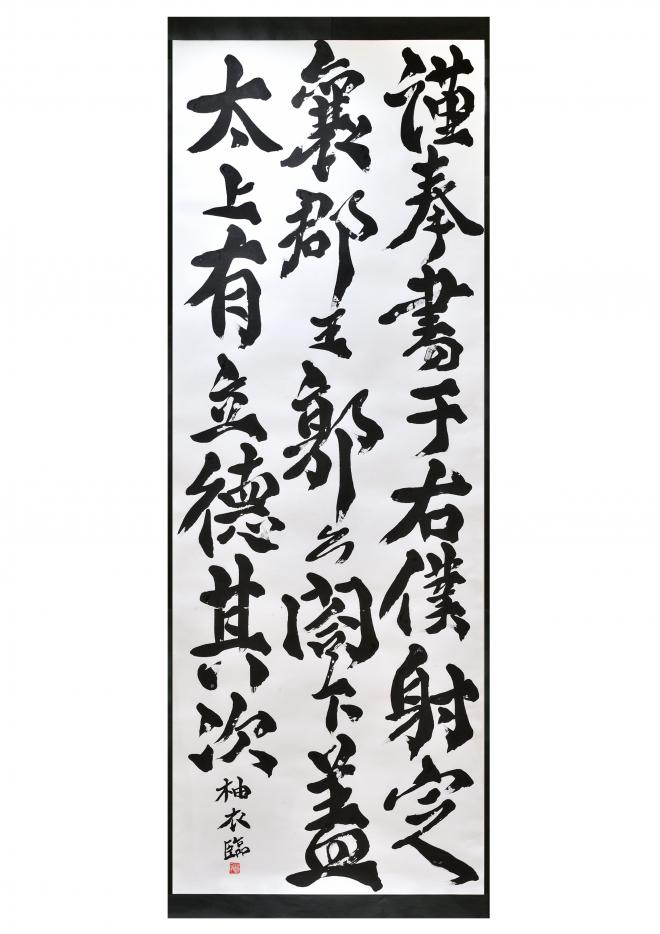 謹奉書于右僕射定
襄郡王郭公閤下蓋
太上有立德其次
柚衣臨